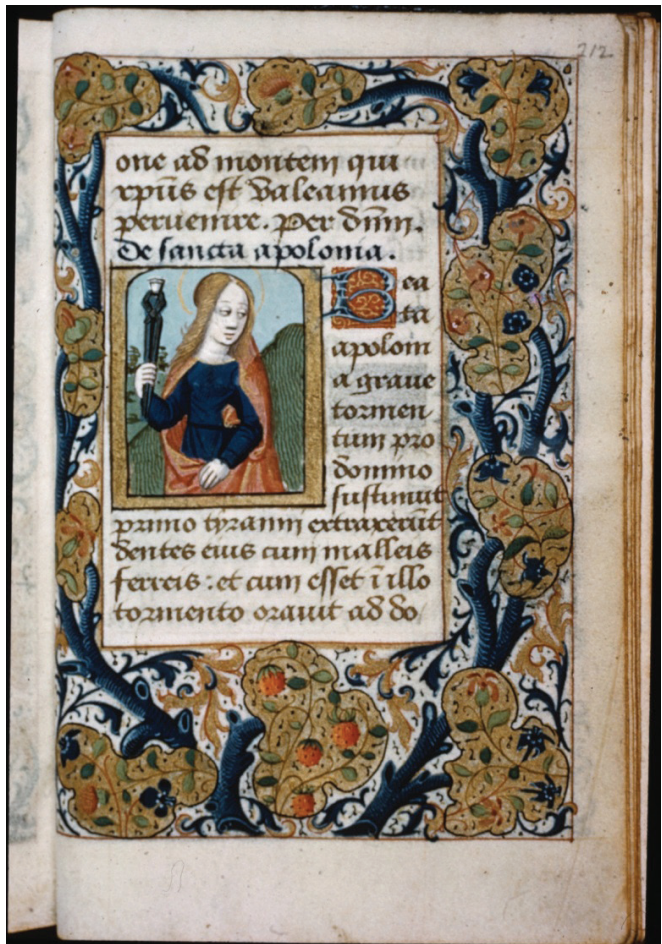 212
one ad montem qui
xp̄us est valeamus
peruenire. Per dnm̄.
De sancta apolonia.
Bea
ta
apoloni
a graue
tormen
tum pro
domino
sustinuit
primo tyranni extraxerūt
dentes eius cum malleis
ferreis : et cum esset ī illo
tormento orauit ad do